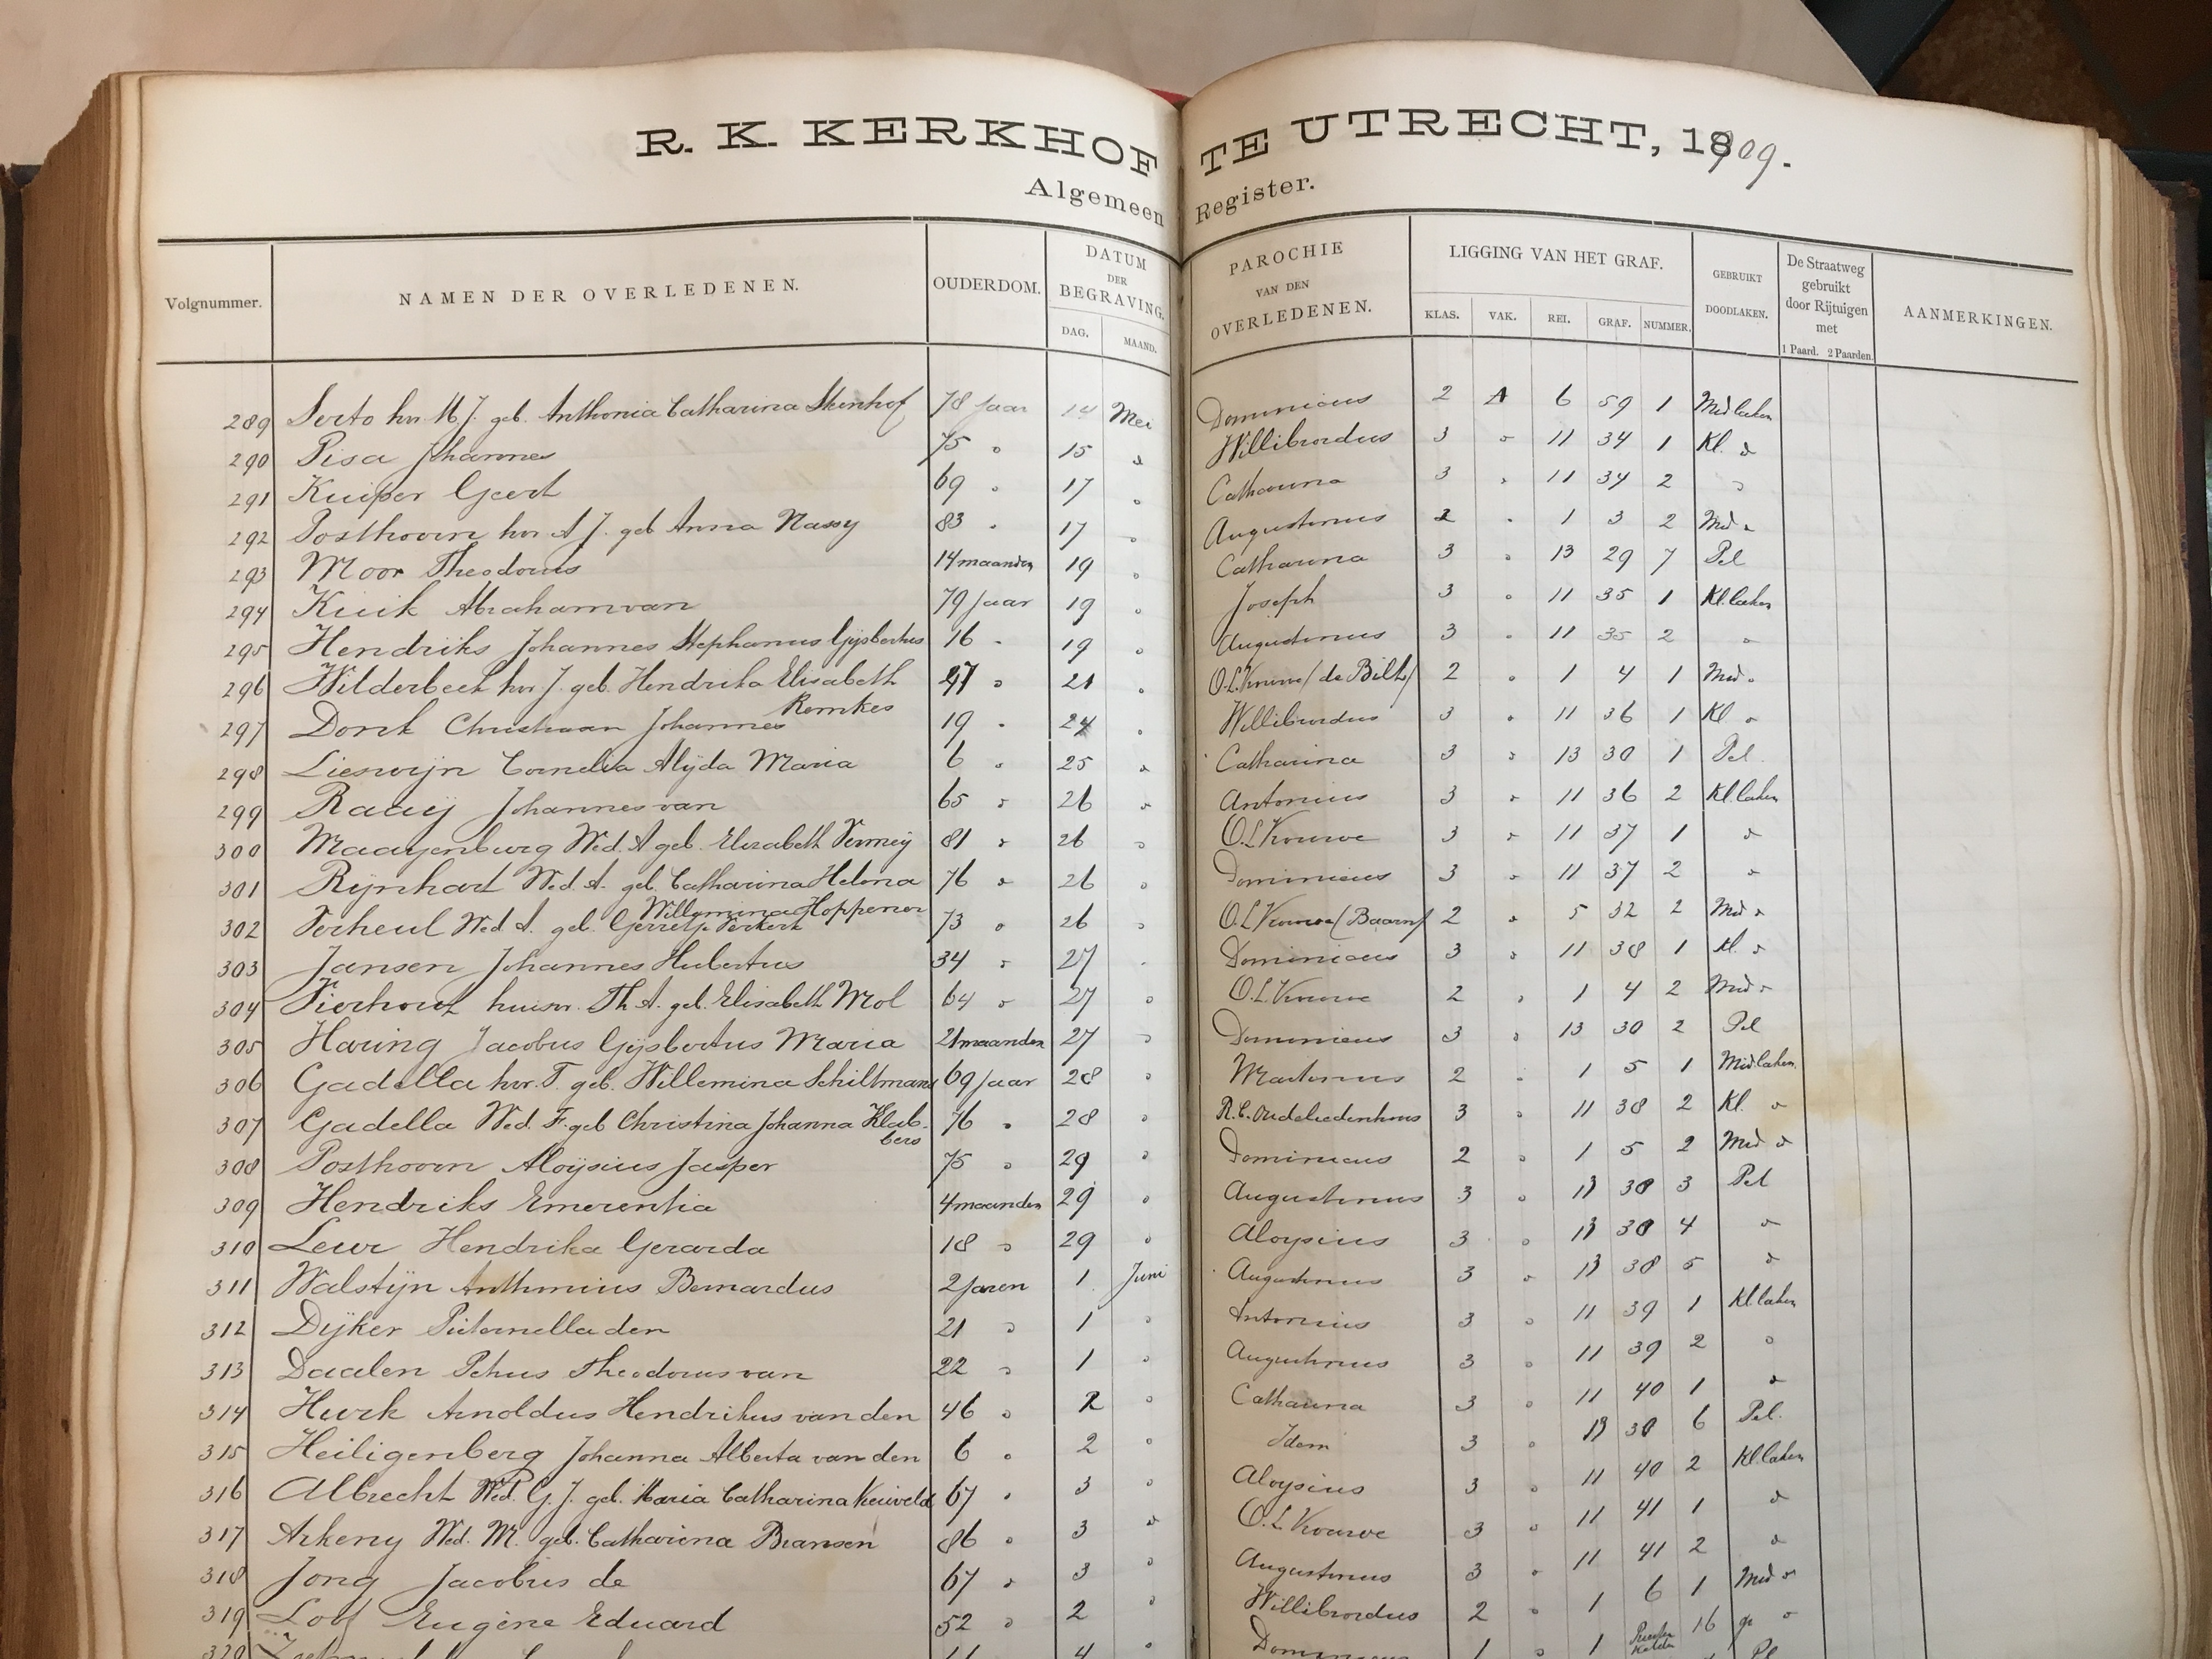 R. K. KERKHOF TE UTRECHT, 1909.
Algemeen Register.
Volgnummer. NAMEN DER OVERLEDENEN. OUDERDOM. DATUM DER BEGRAVING. DAG. MAAND. PAROCHIE VAN DEN OVERLEDENEN. LIGGING VAN HET GRAF. KLAS. VAK. REI. GRAF. NUMMER. GEBRUIKT DOODLAKEN. De Straatweg gebruikt door Rijtuigen met 1 Paard. 2 Paarden. AANMERKINGEN.
289 Serto hvr. M J. geb. Anthonia Catharina 78 Jaar 14 Mei Dominicus 2 A 6 59 1 Mid laken
290 Pisa Johannes 75 " 15 " Willibrordus 3 " 11 34 1 Kl. "
291 Kuiper Geert 69 " 17 " Catharina 3 " 11 34 2 "
292 Posthoorn hvr. A J. geb Anna Nassy 83 " 17 " Augustinus 2 " 1 3 2 Mid "
293 Moor Theodorus 14 maanden 19 " Catharina 3 " 13 29 7 Pel
294 Kuik Abraham van 79 Jaar 19 " Joseph 3 " 11 35 1 Kl. laken
295 Hendriks Johannes Stephanus Gijsbertus 16 " 19 " Augustinus 3 " 11 35 2 "
296 Wilderbeek hvr. J. geb. Hendrika Elisabeth Remkes 47 " 21 " O.L. Vrouw (de Bilt) 2 " 1 4 1 Mid "
297 Donk Christiaan Johannes 19 " 24 " Willibrordus 3 " 11 36 1 Kl "
298 Lieswijn Cornelia Alijda Maria 6 " 25 " Catharina 3 " 13 30 1 Pel
299 Raaij Johannes van 65 " 26 " Antonius 3 " 11 36 2 Kl. laken
300 Maayenburg Wed. A geb. Elisabeth Vermeij 81 " 26 " O.L. Vrouwe 3 " 11 37 1 "
301 Rijnhart Wed. A. geb. Catharina Helena Willemina Hoppener 76 " 26 " Dominicus 3 " 11 37 2 "
302 Verheul Wed A. geb. Gerretje Verkerk 73 " 26 " O.L. Vrouwe (Baarn) 2 " 5 32 2 Mid "
303 Jansen Johannes Hubertus 34 " 27 " Dominicus 3 " 11 38 1 Kl. "
304 Vierhout huisvr. Th. A. geb. Elisabeth Mol 64 " 27 " O.L. Vrouwe 2 " 1 4 2 Mid "
305 Haring Jacobus Gijsbertus Maria 21 maanden 27 " Dominicus 3 " 13 30 2 Pel
306 Gadella hvr. T. geb. Willemina Schiltmans 69 Jaar 28 " Martinus 2 " 1 5 1 Mid. laken
307 Gadella Wed. F. geb Christina Johanna Klabbers 76 " 28 " R.C. Oudeliedenhuis 3 " 11 38 2 Kl. "
308 Posthoorn Aloysius Jasper 75 " 29 " Dominicus 2 " 1 5 2 Mid "
309 Hendriks Emerentia 4 maanden 29 " Augustinus 3 " 13 30 3 Pel
310 Leur Hendrika Gerarda 18 " 29 " Aloysius 3 " 13 30 4 "
311 Walstijn Anthonius Bernardus 2 Jaren 1 Juni Augustinus 3 " 13 30 5 "
312 Dijker Pieternella den 21 " 1 " Antonius 3 " 11 39 1 Kl. laken
313 Daalen Petrus Theodorus van 22 " 1 " Augustinus 3 " 11 39 2 "
314 Hurk Arnoldus Hendrikus van den 46 " 2 " Catharina 3 " 11 40 1 "
315 Heiligenberg Johanna Alberta van den 6 " 2 " Idem 3 " 13 30 6 Pel.
316 Albrecht Wed. G. J. geb. Maria Catharina 67 " 3 " Aloysius 3 " 11 40 2 Kl. laken
317 Arkeny Wed. M. geb. Catharina Bransen 86 " 3 " O.L. Vrouwe 3 " 11 41 1 "
318 Jong Jacobus de 67 " 3 " Augustinus 3 " 11 41 2 "
319 Loof Eugène Eduard 52 " 2 " Willibrordus 2 " 1 6 1 Mid "
320 4 " 1 " 1 16 gr "